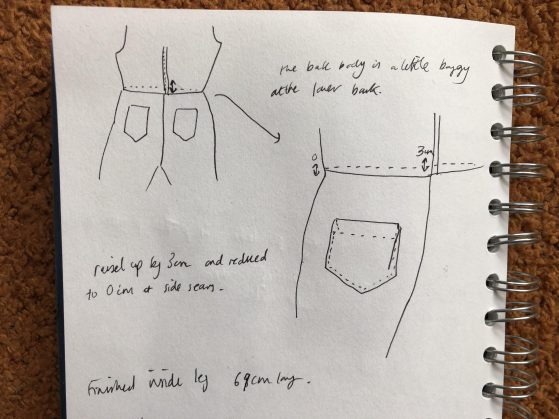 The back body is a little baggy
at the lower back.
0
3cm
raised up by 3cm and reduced
to 0cm at side seam.
Finished inside leg 69cm long.